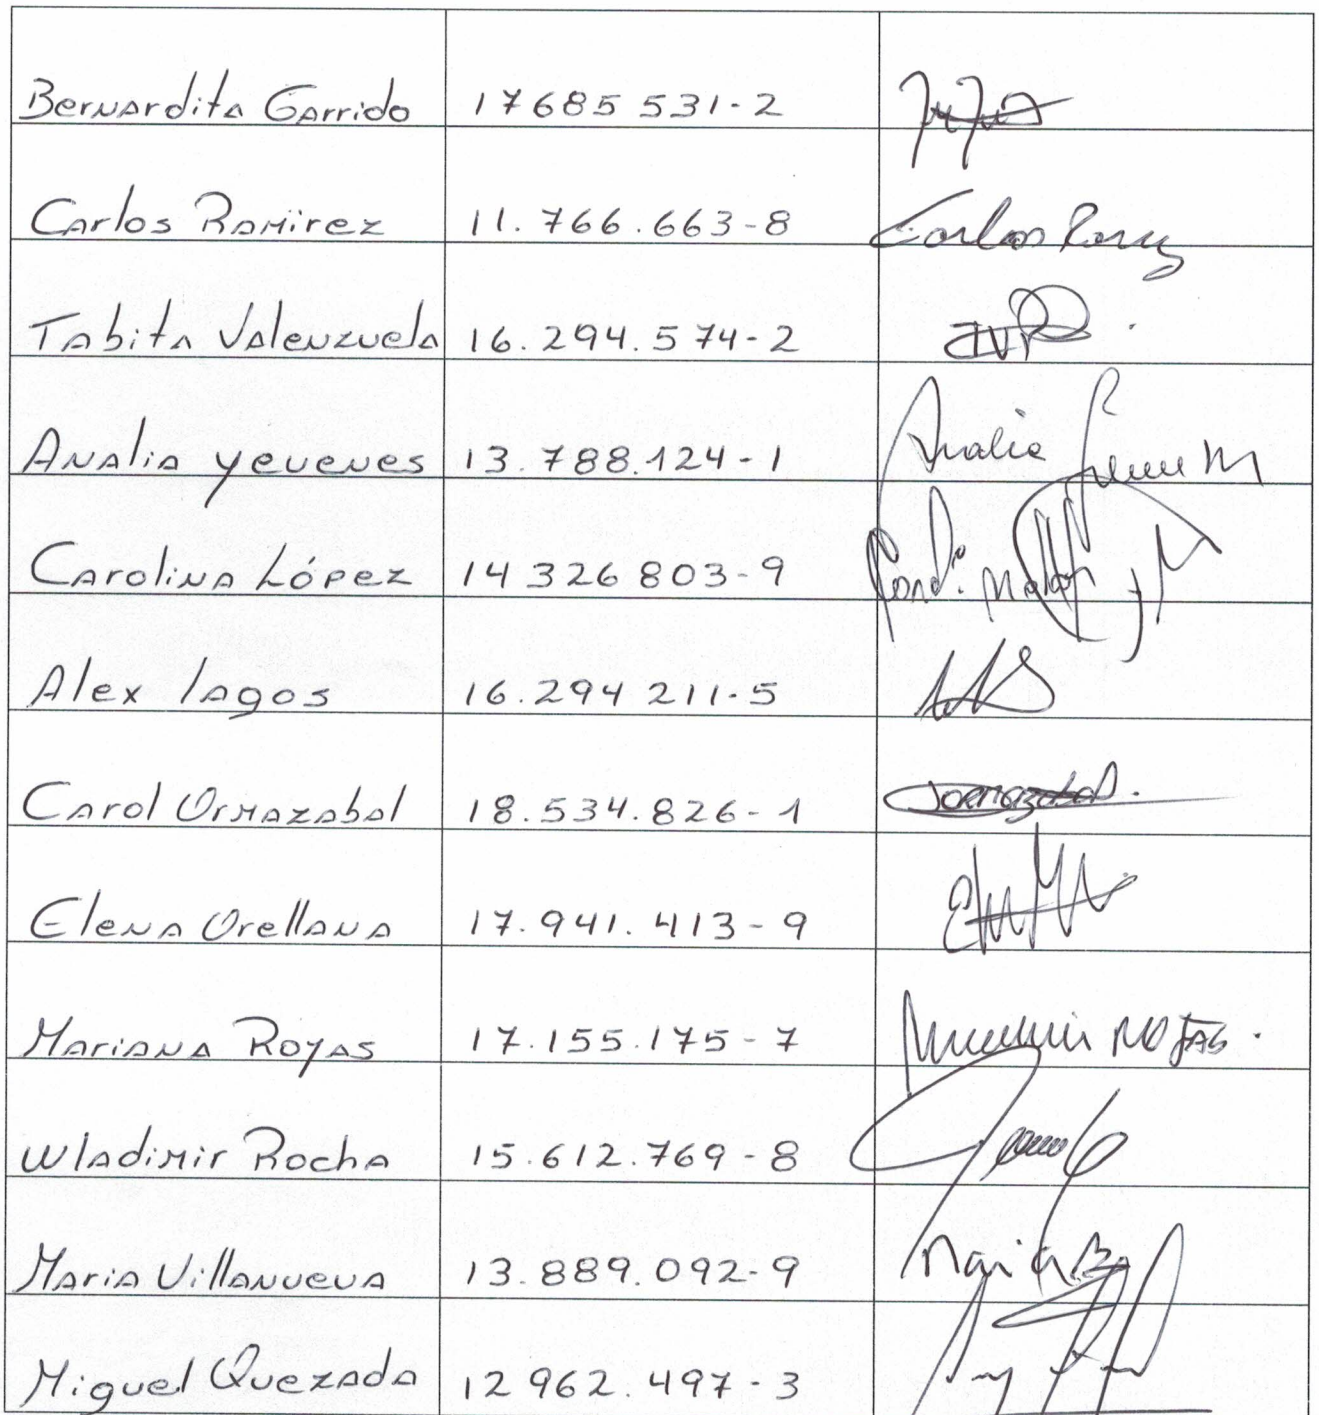 Bernardita Garrido 17685 531-2
Carlos Ramirez 11.766.663-8 Carlos
Tabita Valenzuela 16.294.574-2
Analia Yevenes 13.788.124-1 Analia
Carolina López 14 326 803-9
Alex lagos 16.294 211-5
Carol Ormazabal 18.534.826-1
Elena Orellana 17.941.413-9
Mariana Royas 17.155.175-7 ROJAS.
Wladimir Rocha 15.612.769-8
Maria Villanueva 13.889.092-9
Miguel Quezada 12 962.497-3